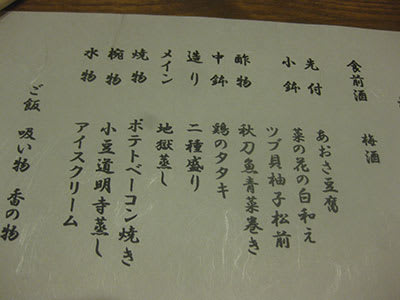 食前酒　梅酒
先付　あおさ豆腐
小鉢　菜の花の白和え
ツブ貝柚子松前
酢物　秋刀魚青菜巻き
中鉢　鶏のタタキ
造り　二種盛り
メイン　地獄蒸し
焼物　ポテトベーコン焼き
椀物　小豆道明寺蒸し
水物　アイスクリーム
ご飯　吸い物　香の物